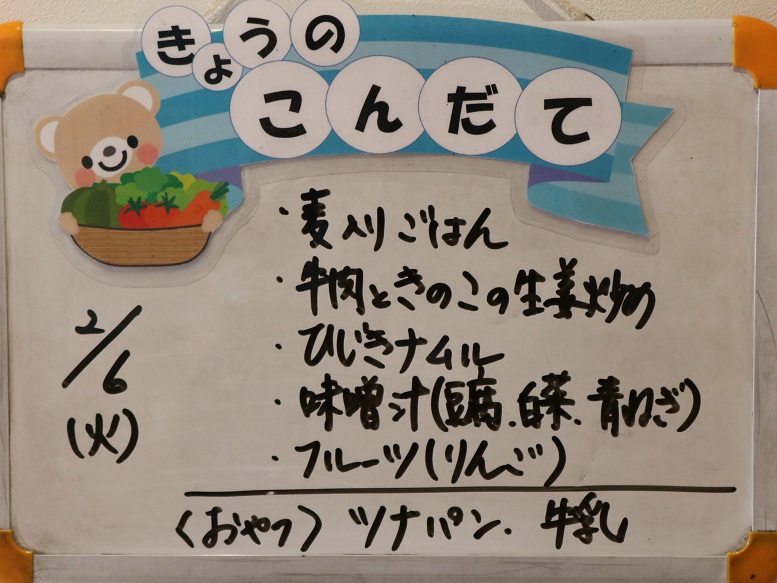 きょうの
こんだて
・麦入りごはん
・牛肉ときのこの生姜炒め
・ひじきナムル
・味噌汁(豆腐、白菜、青ねぎ)
・フルーツ(りんご)
2/6
(火)
〈おやつ〉ツナパン、牛乳